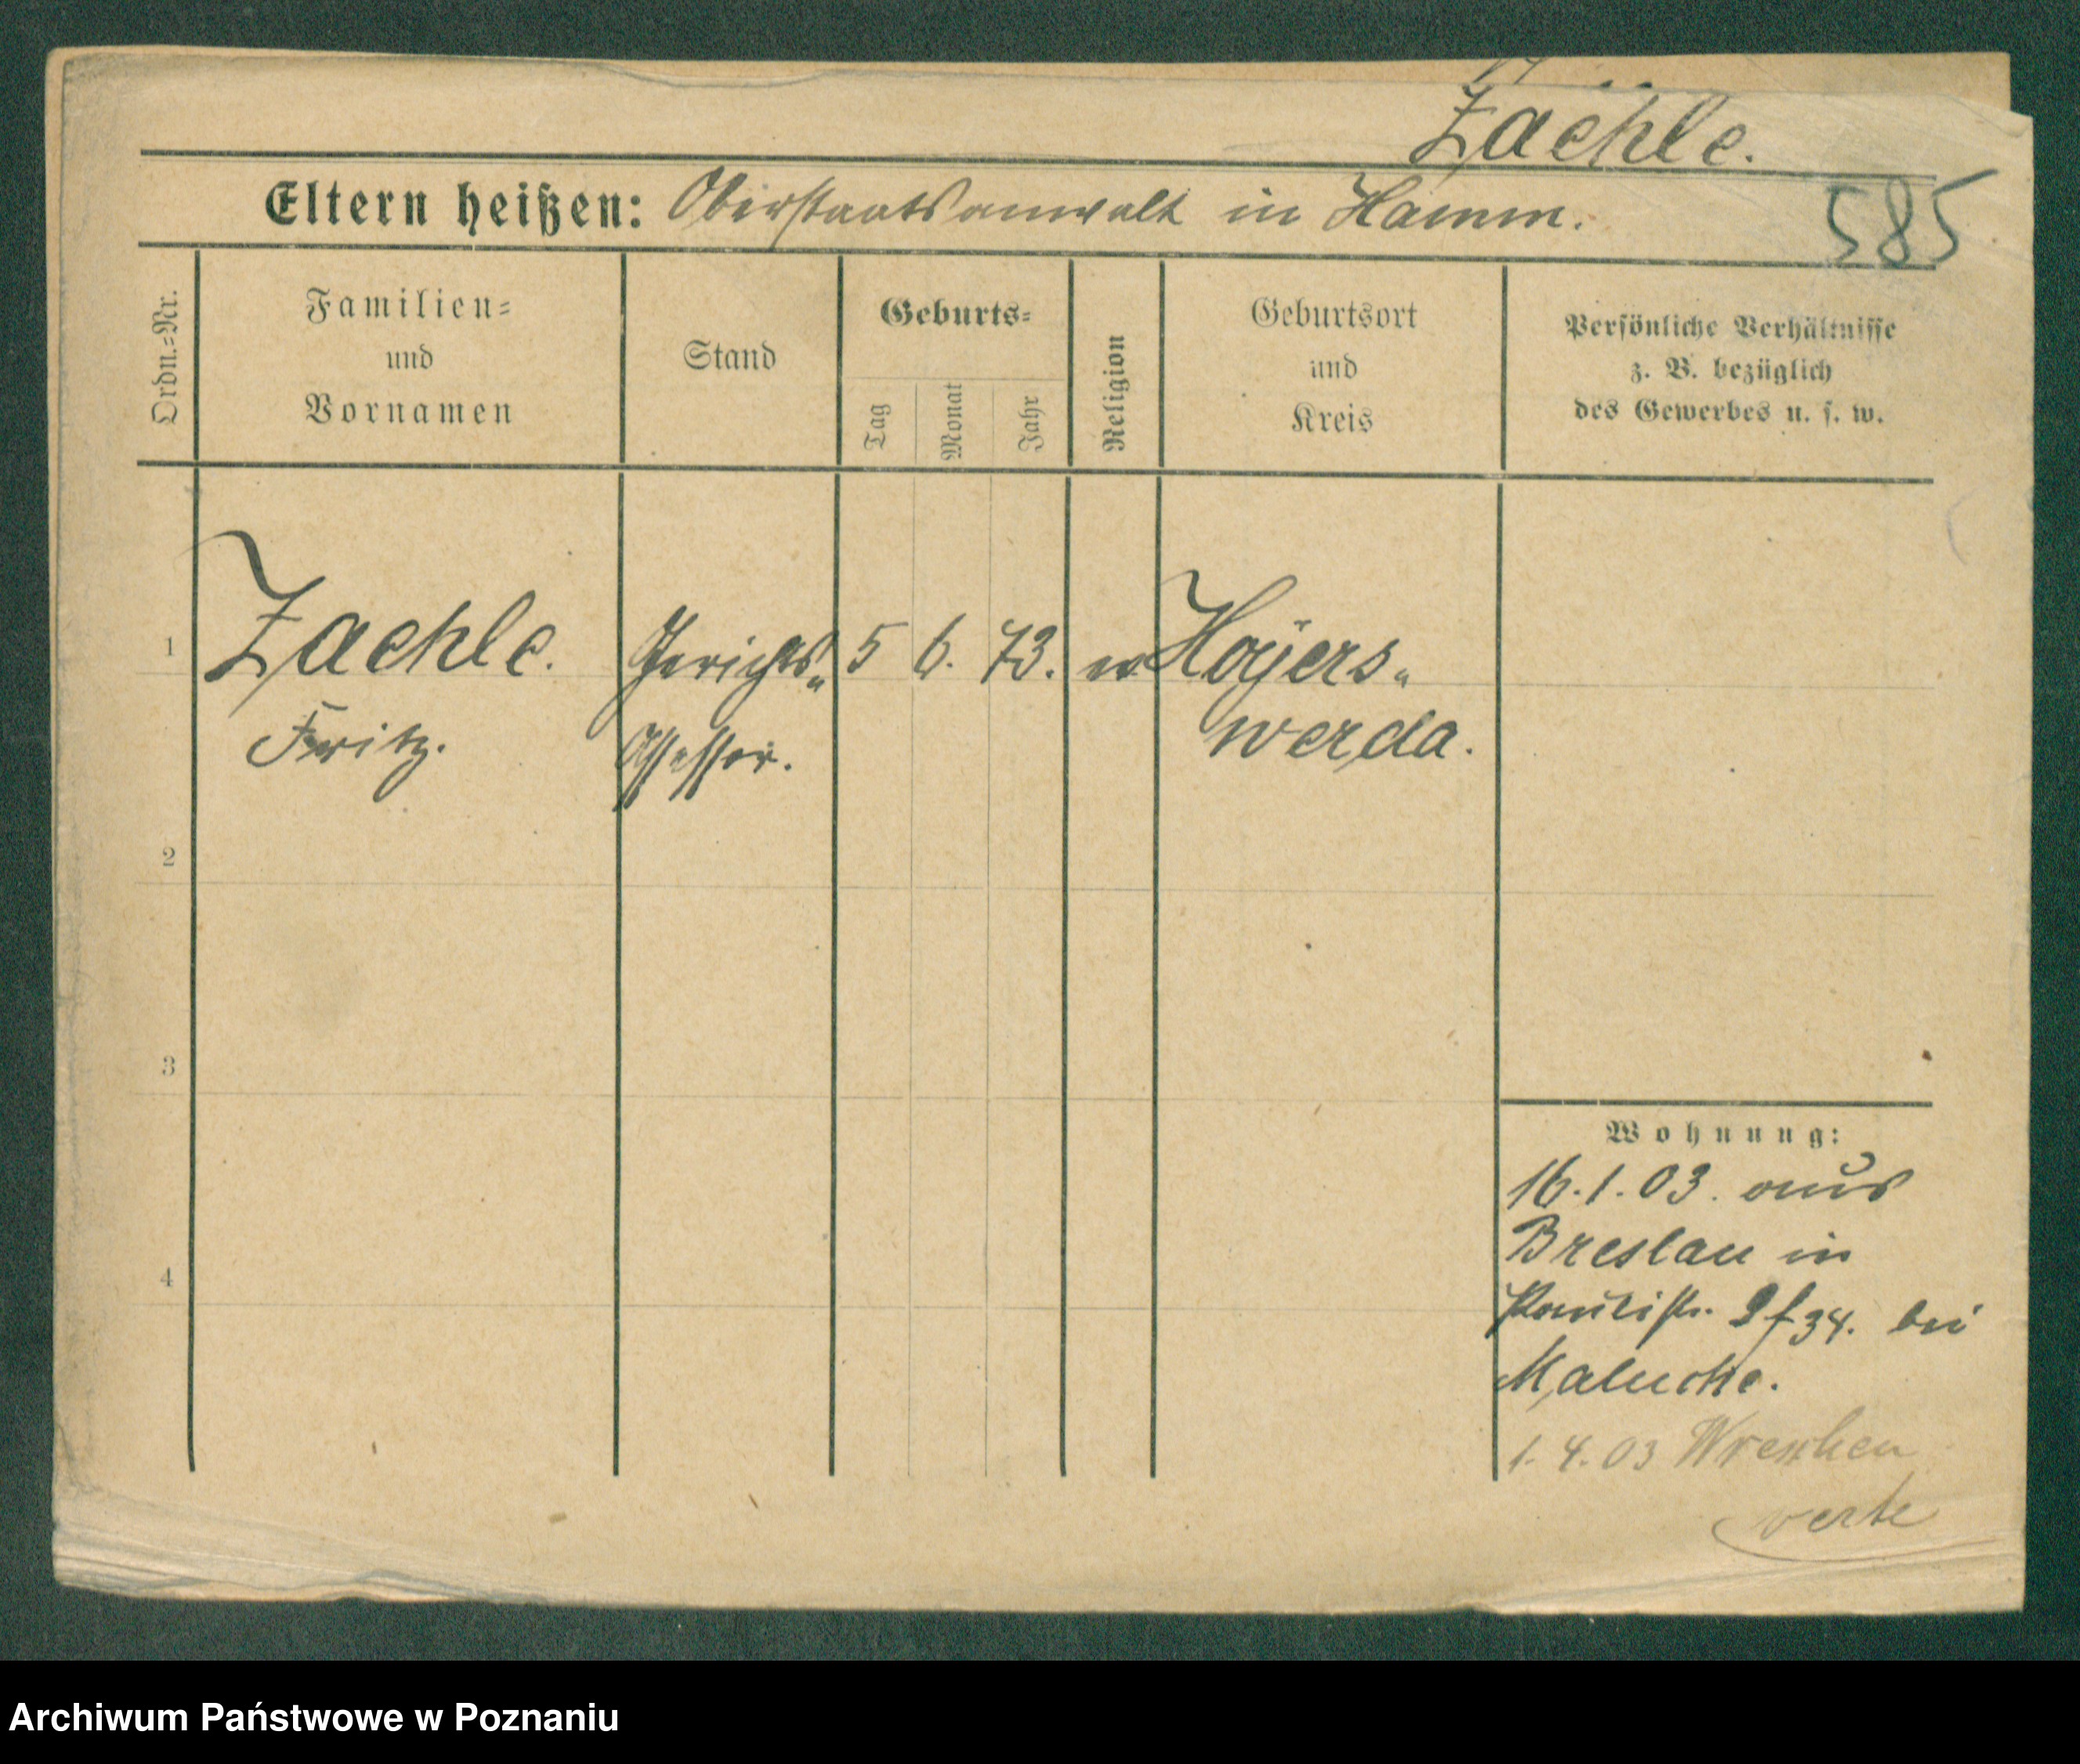 Zaehle.
585
Eltern heißen: Oberstaatsanwalt in Hamm.
Ordn.=Nr.
Familien=
und
Vornamen
Stand
Geburts=
Tag
Monat
Jahr
Religion
Geburtsort
und
Kreis
Persönliche Verhältnisse
z. B. bezüglich
des Gewerbes u. s. w.
1 Zaehle. Gerichts„ 5 6. 73. ev Hoÿers„
Fritz. Assessor. werda.
2
3
4
Wohnung:
16.1.03. aus
Breslau in
Paulistr. 34. bei
1.4.03 Wreschen
verte
Archiwum Państwowe w Poznaniu